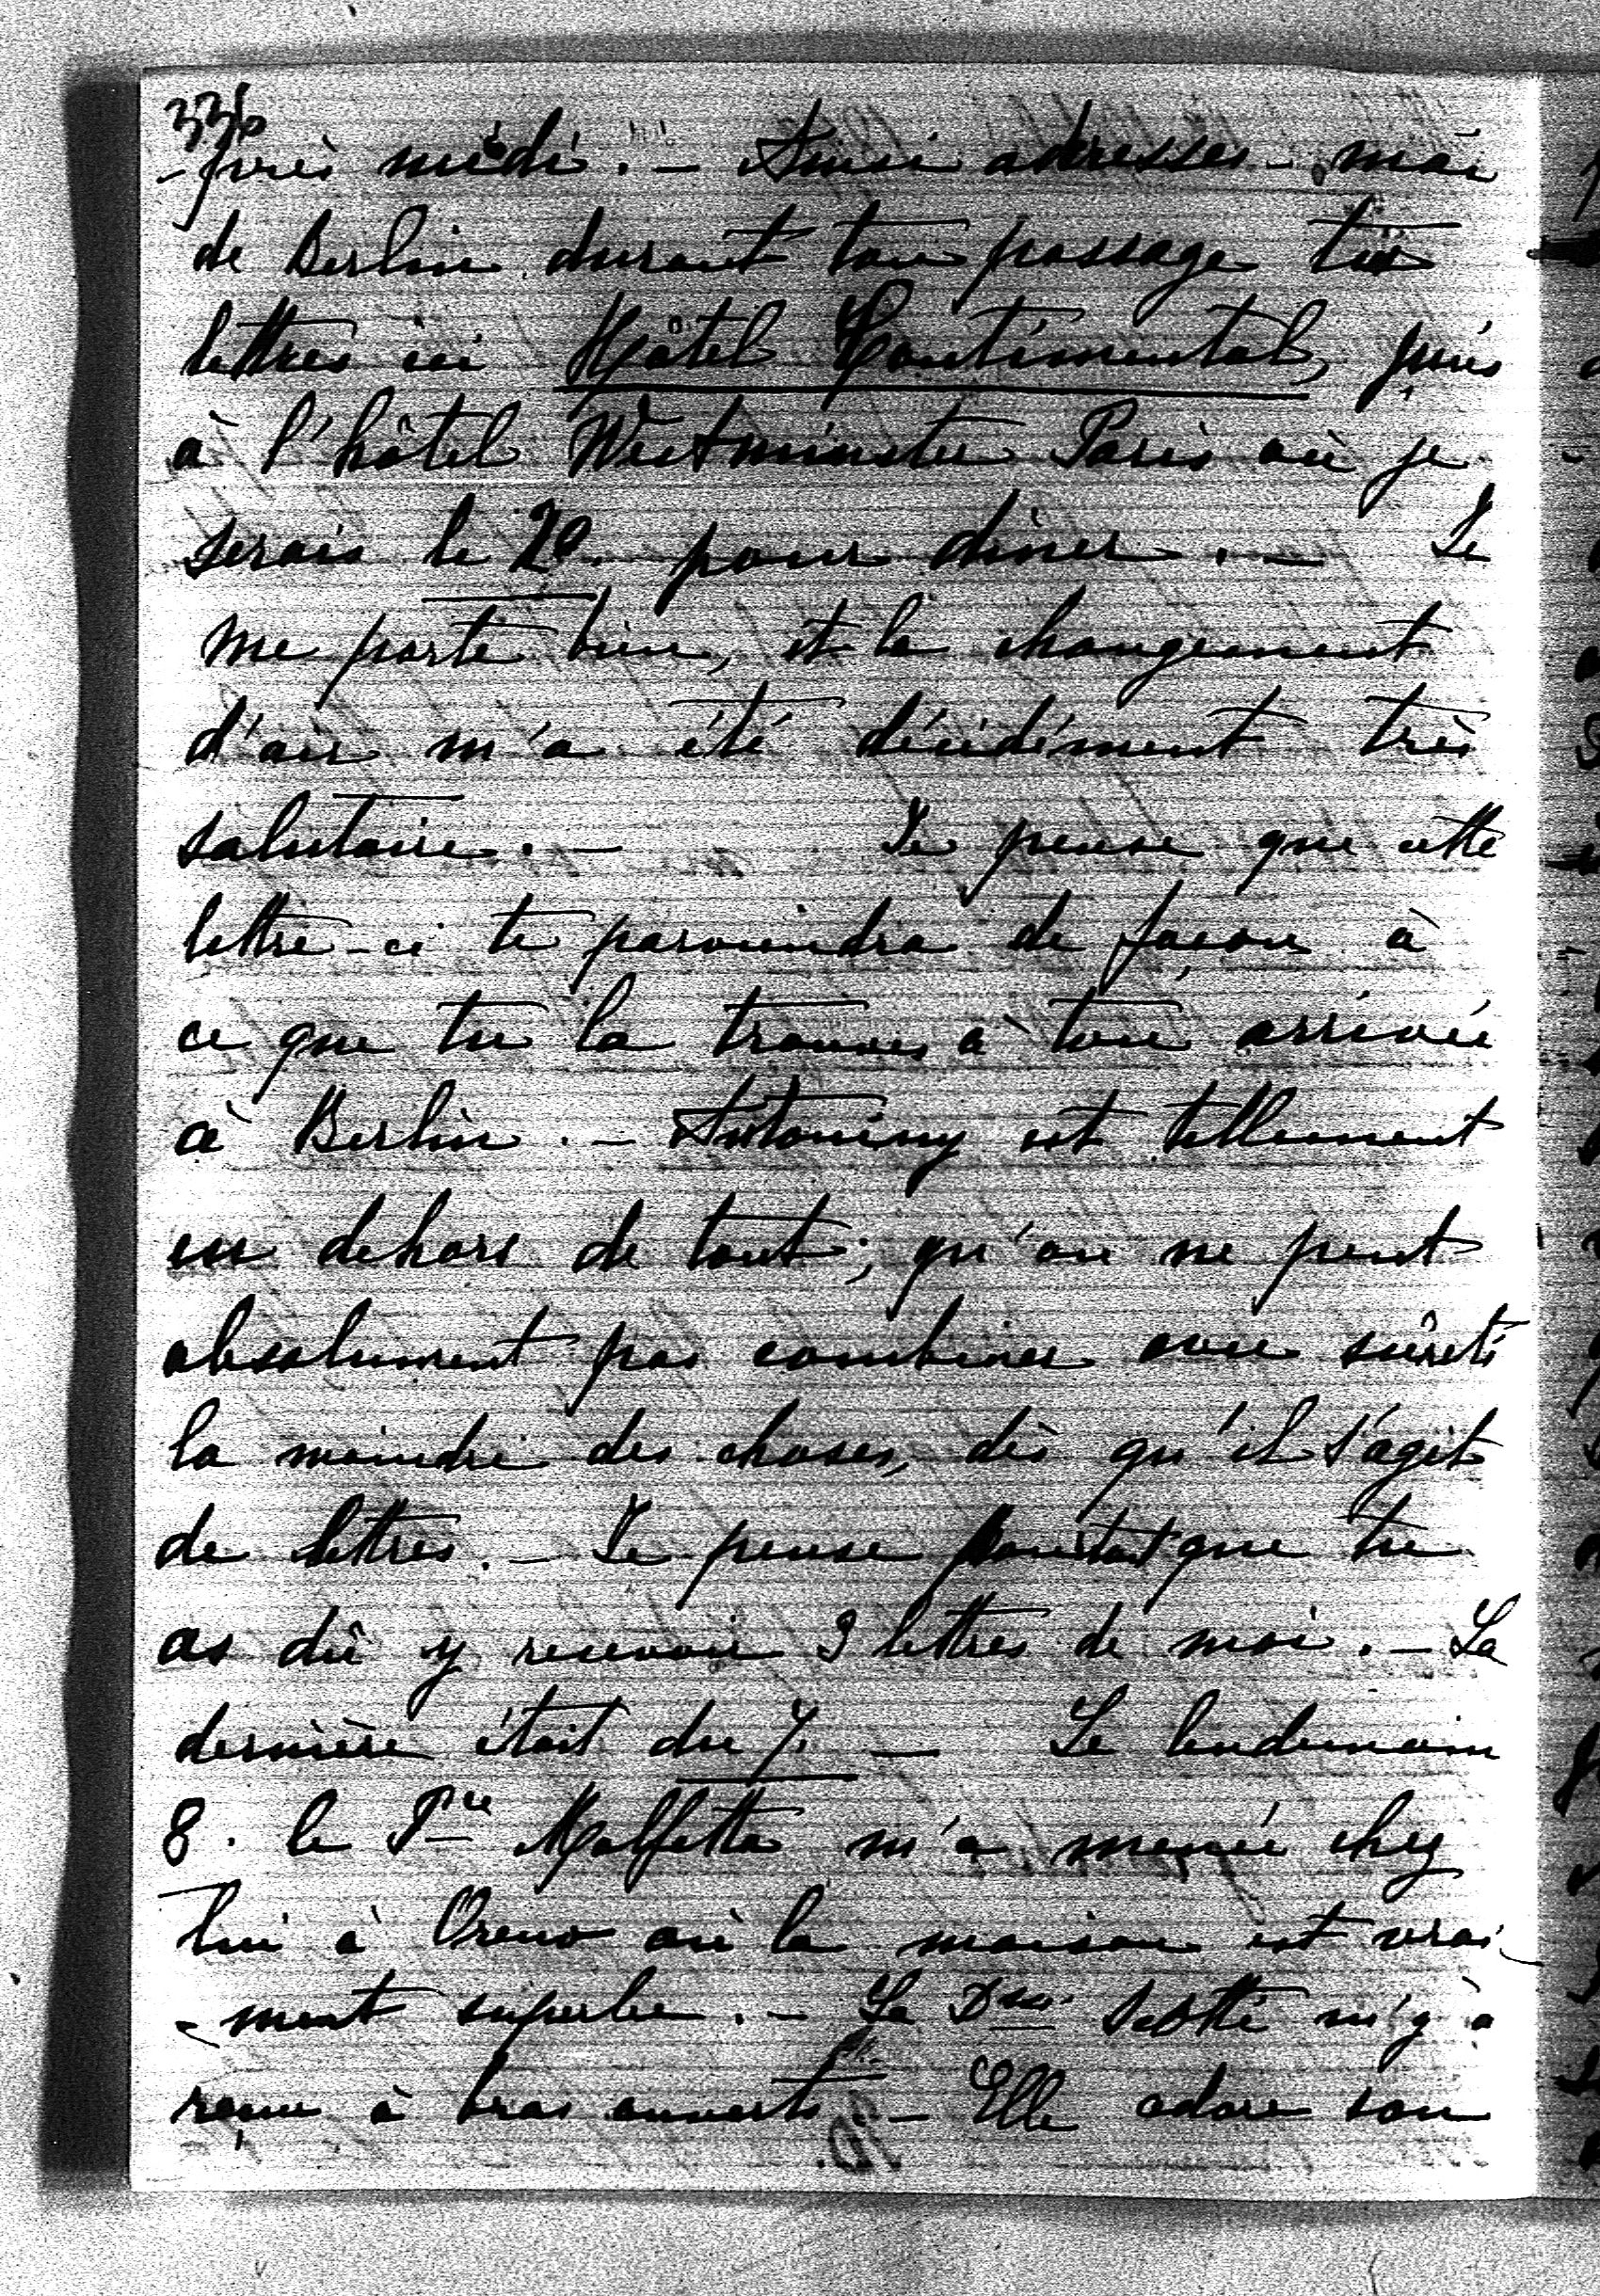 336
-près midi. — Ainsi adresses-moi
de Berlin durant ton passage tes
lettres ici Hôtel Continental, puis
à l'hôtel Westminster Paris où je
serais le 20. pour dîner. — Je
me porte bien, et le changement
d'air m'a été décidément très
salutaire. — Je pense que cette
lettre-ci te parviendra de façon à
ce que tu la trouves à ton arrivée
à Berlin. — Antoniny est tellement
en dehors de tout, qu'on ne peut
absolument pas combiner avec sûreté
la moindre des choses, dès qu'il s'agit
de lettres. — Je pense pourtant que tu
as dû y recevoir 3 lettres de moi. — La
dernière était du 7. — Le lendemain
8. le Pce Molfetta m'a menée chez
lui à Oreno où la maison est vrai-
-ment superbe. — La Dsse Scotti m'y a
reçue à bras ouverts — Elle adore son